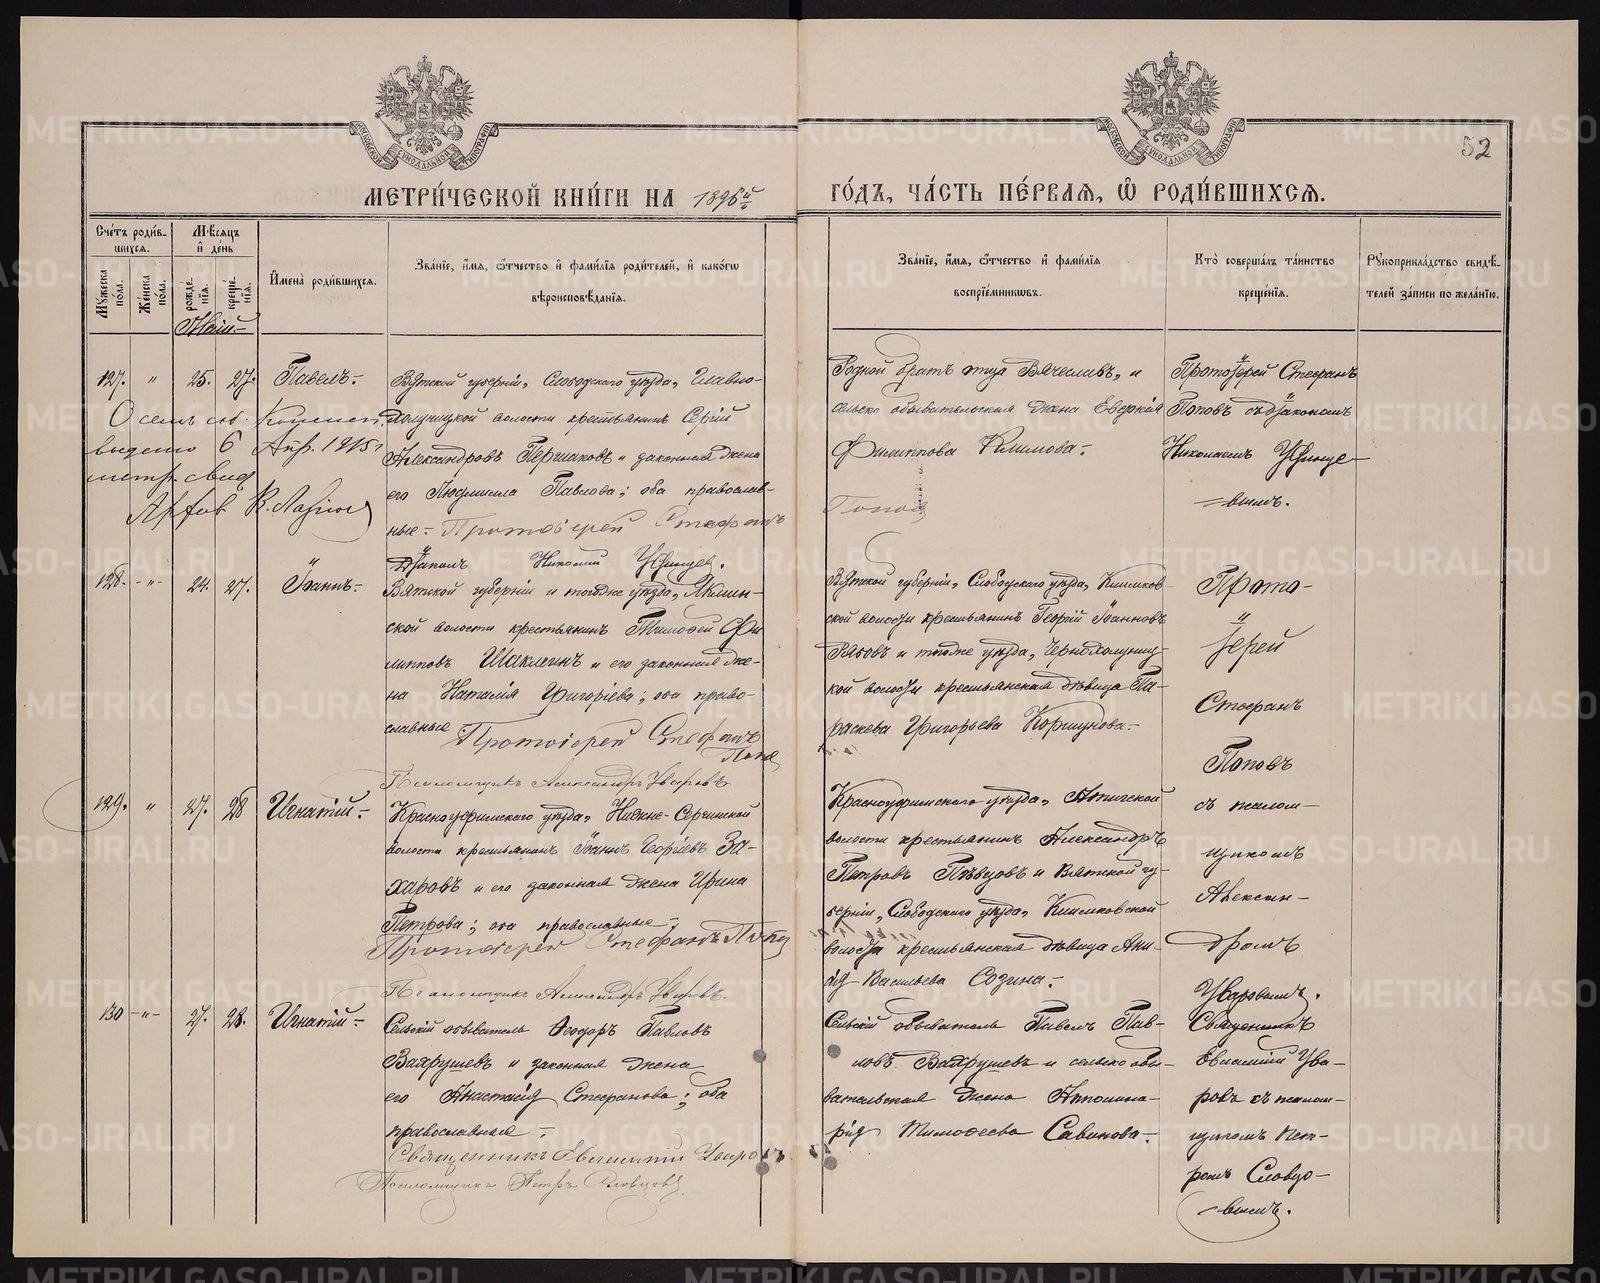 52
МЕТРИ́ЧЕСКОЙ КНИ́ГИ НА 1896й
ГО́ДЪ, ЧА́СТЬ ПЕ́РВАѦ, Ѡ РОДИ́ВШИХСѦ.
Сче́тъ роди́в-
шихсѧ.
Мѣ́сѧцъ
и де́нь
Мꙋ́жеска по́ла.
Же́нска по́ла.
рожде́-нїѧ.
креще́-нїѧ.
И҆мена̀ роди́вшихсѧ.
Зва́нїе, и҆́мѧ, ѻ҆́тчество и҆ фамі́лїѧ роди́телей, и҆ како́гѡ
вѣроисповѣ́данїѧ.
Зва́нїе, и҆́мѧ, ѻ҆́тчество и҆ фамі́лїѧ
воспрїе́мникѡвъ.
Кто̀ соверша́лъ та́инство
креще́нїѧ.
Рꙋкоприкла́дство свидѣ́-
телей за́писи по жела́нїю.
Май
127. " 25. 27. Павелъ.
Вятской губерніи, Слободскаго уѣзда, Главно-
холуницкой волости крестьянинъ Сергій
Александровъ Першаковъ и законная жена
его Людмила Павлова; оба православ-
ные. Протоіерей Стефанъ
Попов
Діаконъ Николай
выдано 6 Апр. 1915 г.
метр. свид.
Родной братъ отца Вячеславъ, и
сельско обывательская жена Евдокія
Филиппова Климова.
Протоіерей Стефанъ
Поповъ съ діакономъ
Николаемъ
вымъ.
128. " 24. 27. Іоаннъ.
Вятской губерніи и того же уѣзда,
ской волости крестьянинъ Тимофей Фи
липповъ Шаклеинъ и его законная же-
на Наталія Григоріева; оба право-
славные Протоіерей Стефанъ
Попов
Псаломщикъ Александръ Уваровъ
Вятской губерніи, Слободскаго уѣзда, Климков-
ской волости крестьянинъ Георгій Іоанновъ
и того же уѣзда, Чернохолуниц-
кой волости крестьянская дѣвица Па-
раскева Григорьева Коршунова.
Прото-
іерей
Стефанъ
Поповъ
съ псалом-
щикомъ
Алексан-
дромъ
Уваровымъ.
129. " 27. 28 Игнатій.
Красноуфимскаго уѣзда, Нижне-Сергинской
волости крестьянинъ Іоаннъ Георгіевъ За-
харовъ и его законная жена Ирина
Петрова; оба православные.
Протоіерей Стефанъ Попов
Псаломщикъ Александръ Уваровъ.
Красноуфимскаго уѣзда, Ачитской
волости крестьянинъ Александръ
Петровъ Пѣвцовъ и Вятской гу-
берніи, Слободскаго уѣзда, Климковской
волости крестьянская дѣвица Ани-
сія Васильева Созина.
130 " 27. 28. Игнатій
Сельскій обыватель Ѳеодоръ Павловъ
Вахрушевъ и законная жена
его Анастасія Стефанова; оба
православные.
Священникъ Евгеній Уваровъ
Псаломщикъ Петръ Словцовъ
Сельскій обыватель Павелъ Пав-
ловъ Вахрушевъ и сельско обы-
вательская жена Аполлина-
рія Тимофеева Савинова.
Священникъ
Евгеній Ува-
ровъ съ псалом-
щикомъ Пет-
ромъ Словцо-
вымъ.